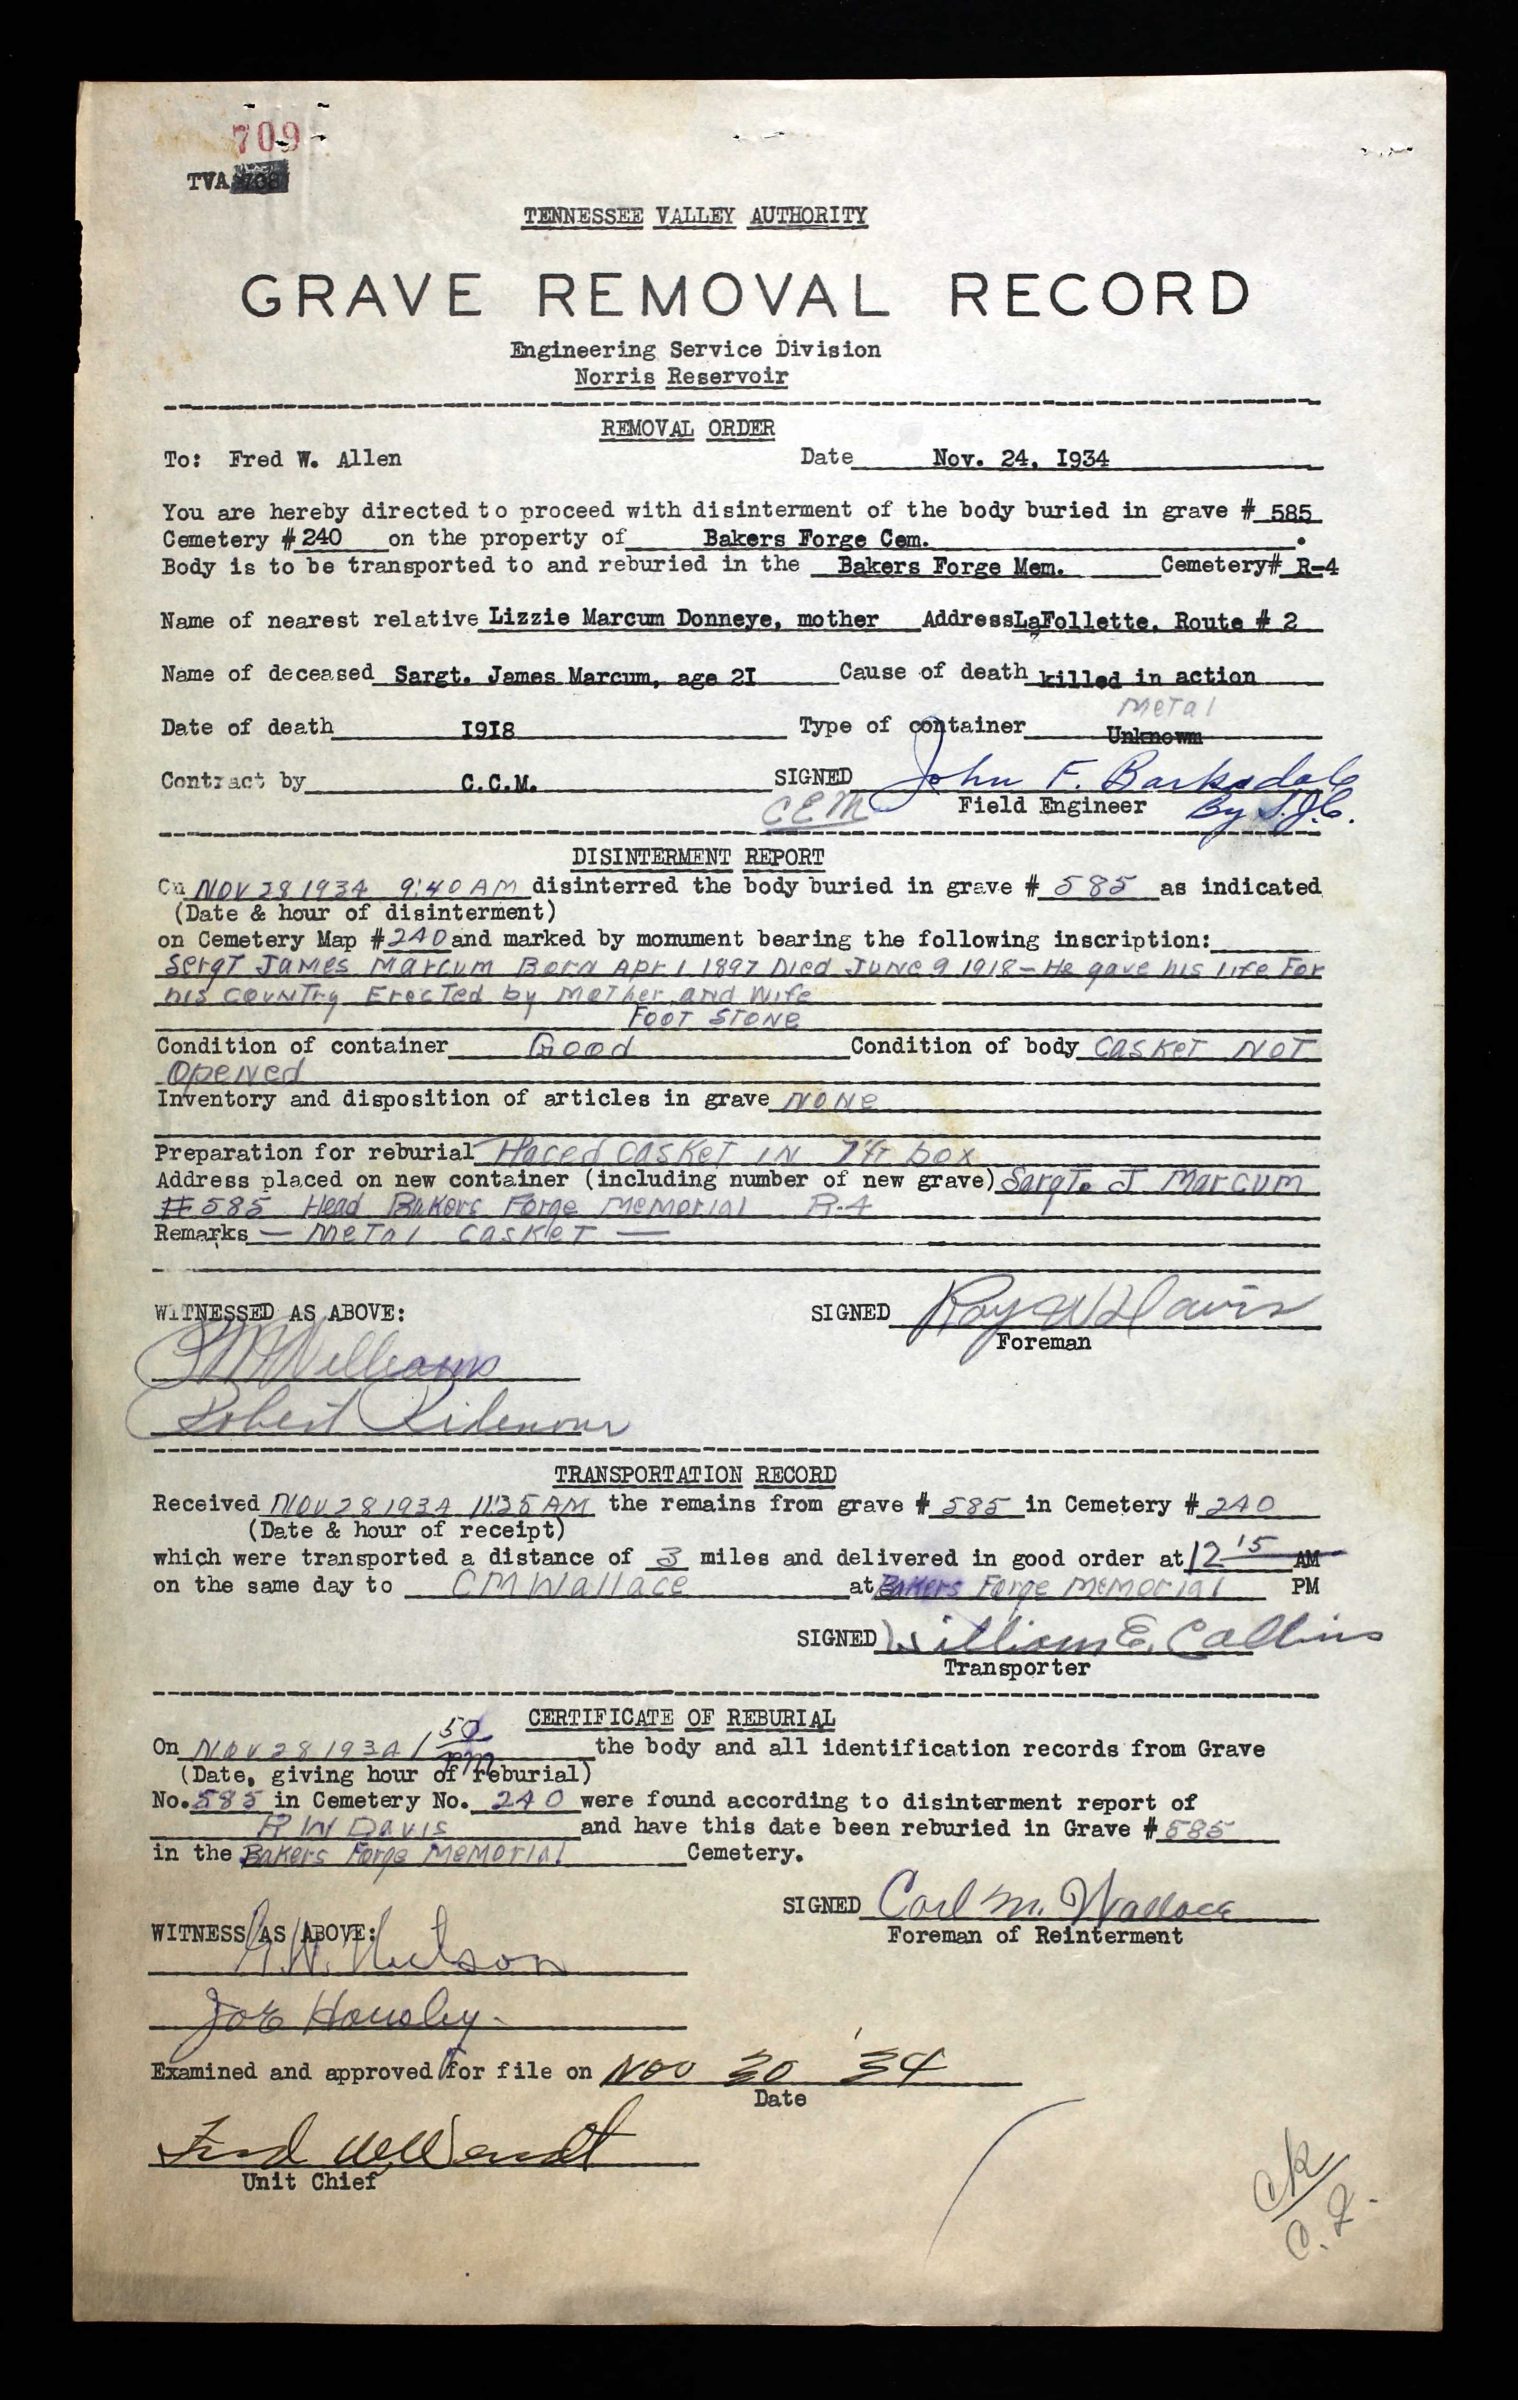 709
TVA
TENNESSEE VALLEY AUTHORITY
GRAVE REMOVAL RECORD
Engineering Service Division
Norris Reservoir
REMOVAL ORDER
To: Fred W. Allen Date Nov. 24, I934
You are hereby directed to proceed with disinterment of the body buried in grave # 585
Cemetery # 240 on the property of Bakers Forge Cem. .
Body is to be transported to and reburied in the Bakers Forge Mem. Cemetery# R-4
Name of nearest relative Lizzie Marcum Donneye, mother Address LaFollette, Route # 2
Name of deceased Sargt. James Marcum, age 2I Cause of death killed in action
Metal
Date of death I9I8 Type of container Unknown
Contract by C.C.M. SIGNED John F. Barksdale
CEM Field Engineer By S.J.C.
DISINTERMENT REPORT
On NOV 28 1934 9:40 AM disinterred the body buried in grave # 585 as indicated
(Date & hour of disinterment)
on Cemetery Map # 240 and marked by monument bearing the following inscription:
Sergt James Marcum Born Apr 1 1897 Died June 9 1918 - He gave his life For
his country Erected by Mother and Wife
FOOT STONE
Condition of container Good Condition of body Casket NOT
Opened
Inventory and disposition of articles in grave NONE
Preparation for reburial Placed casket in 7 ft box
Address placed on new container (including number of new grave) Sargt. J Marcum
#585 Head Bakers Forge Memorial R-4
Remarks — Metal Casket —
WITNESSED AS ABOVE: SIGNED Roy W Davis
Foreman
Williams
Robert Ridenour
TRANSPORTATION RECORD
Received NOV 28 1934 11:25 AM the remains from grave # 585 in Cemetery # 240
(Date & hour of receipt)
which were transported a distance of 3 miles and delivered in good order at 12 15 AM
on the same day to CM Wallace at Bakers Forge Memorial PM
SIGNED William E. Collins
Transporter
CERTIFICATE OF REBURIAL
On NOV 28 1934 1 50 PM the body and all identification records from Grave
(Date, giving hour of reburial)
No. 585 in Cemetery No. 240 were found according to disinterment report of
R W Davis and have this date been reburied in Grave # 585
in the Bakers Forge Memorial Cemetery.
SIGNED Carl M. Wallace
WITNESS AS ABOVE: Foreman of Reinterment
Hutson
Joe Housley
Examined and approved for file on Nov 30 '34
Date
Fred W Wendt
Unit Chief
CK